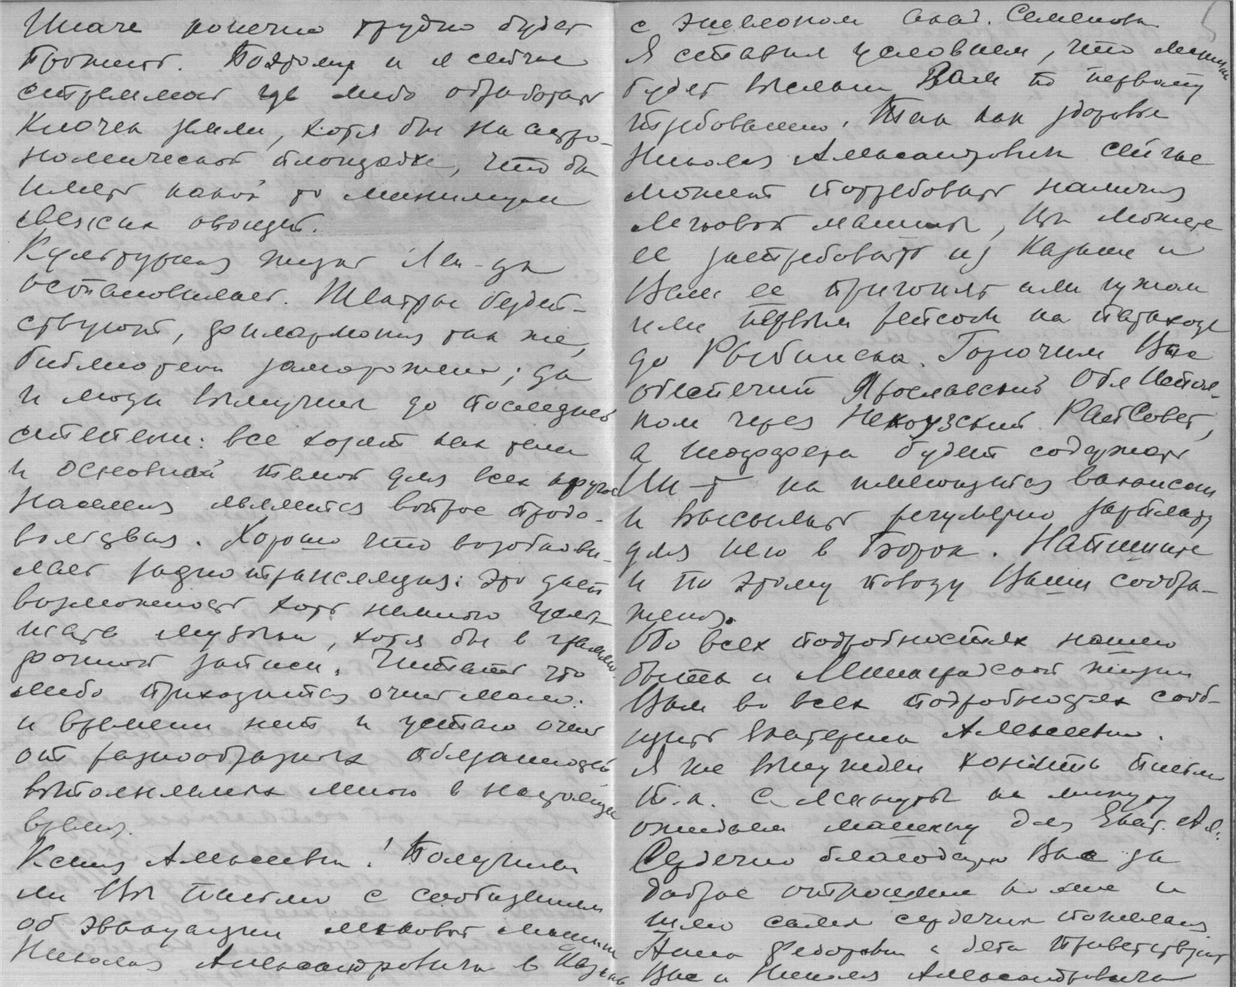 Иначе конечно трудно будет
прожить. Поэтому и я сейчас
стремлюсь где либо обработать
клочек земли, хотя бы на астро-
номической площадке, что бы
иметь какой то минимум
свежих овощей.
Культурная жизнь Лен-да
остановилась. Театры бездей-
ствуют, филармония так же,
библиотеки заморожены; да
и люди вымучены до последней
степени: все ходят как тени
и основной темой для всех кругов
населения является вопрос продо-
вольствия. Хорошо что возобнови-
лась радиотрансляция: это дает
возможность хоть немного услы-
шать музыки, хотя бы в грамо-
фонной записи. Читать что
либо приходится очень мало:
и времени нет и устаю очень
от разнообразных обязанностей
выполняемых мною в настоящее
время.
Ксения Алексеевна! Получили
ли Вы письмо с сообщением
об эвакуации легковой машины
Николая Александровича в Казань
с эшелоном акад. Семенова
Я ставил условием, что машина
будет выслана Вам по первому
требованию. Так как здоровье
Николая Александровича сейчас
может потребовать наличия
легковой машины, Вы можете
ее затребовать из Казани и
Вам ее пригонят или гужом
или первым рейсом на пароходе
до Рыбинска. Горючим Вас
обеспечит Ярославский Облиспол-
ком через Некоузский РайСовет,
а шоффера будет содержать
Ин-т на имеющейся вакансии
и высылать регулярно зарплату
для него в Борок. Напишите
и по этому поводу Ваши сообра-
жения.
Обо всех подробностях нашего
быта и Ленинградской жизни
Вам во всех подробностях сооб-
щит Екатерина Алексеевна.
Я же вынужден кончить письмо
т.к. с минуты на минуту
ожидаем машину для Екат. Ал.
Сердечно благодарю Вас за
доброе отношение ко мне и
шлю самые сердечные пожелания
Анна Федоровна и дети приветствуют
Вас и Николая Александровича